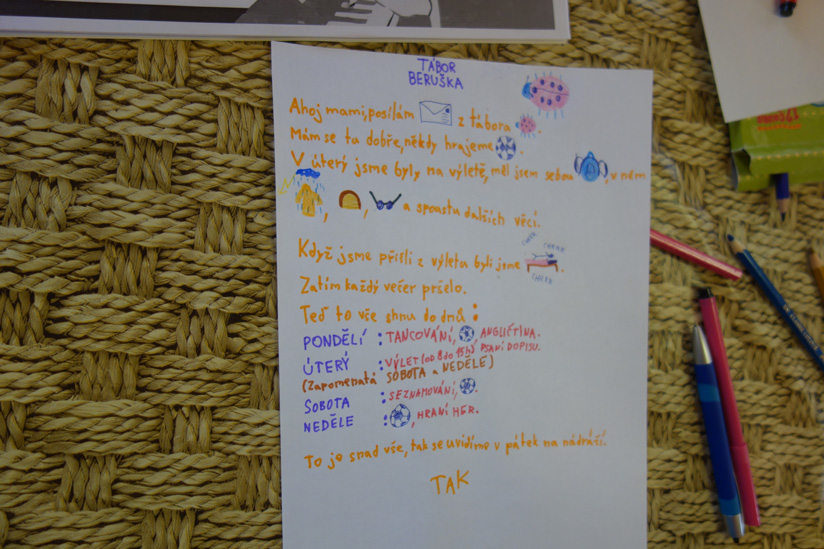 TÁBOR
BERUŠKA
Ahoj mami, posílám z tábora
Mám se tu dobře, někdy hrajeme .
V úterý jsme byly na výletě, měl jsem sebou , v něm
, , a spoustu dalších věcí.
Když jsme přišli z výletu byli jsme .
Zatím každý večer pršelo.
Teď to vše shnu do dnů :
PONDĚLÍ : TANCOVÁNÍ, , ANGLIČTINA.
ÚTERÝ : VÝLET (OD 8 do 15h), PSANÍ DOPISU.
(Zapomenutá SOBOTA a NEDĚLE)
SOBOTA : SEZNAMOVÁNÍ, .
NEDĚLE : , HRANÍ HER.
To je snad vše, tak se uvidíme v pátek na nádraží.
TAK